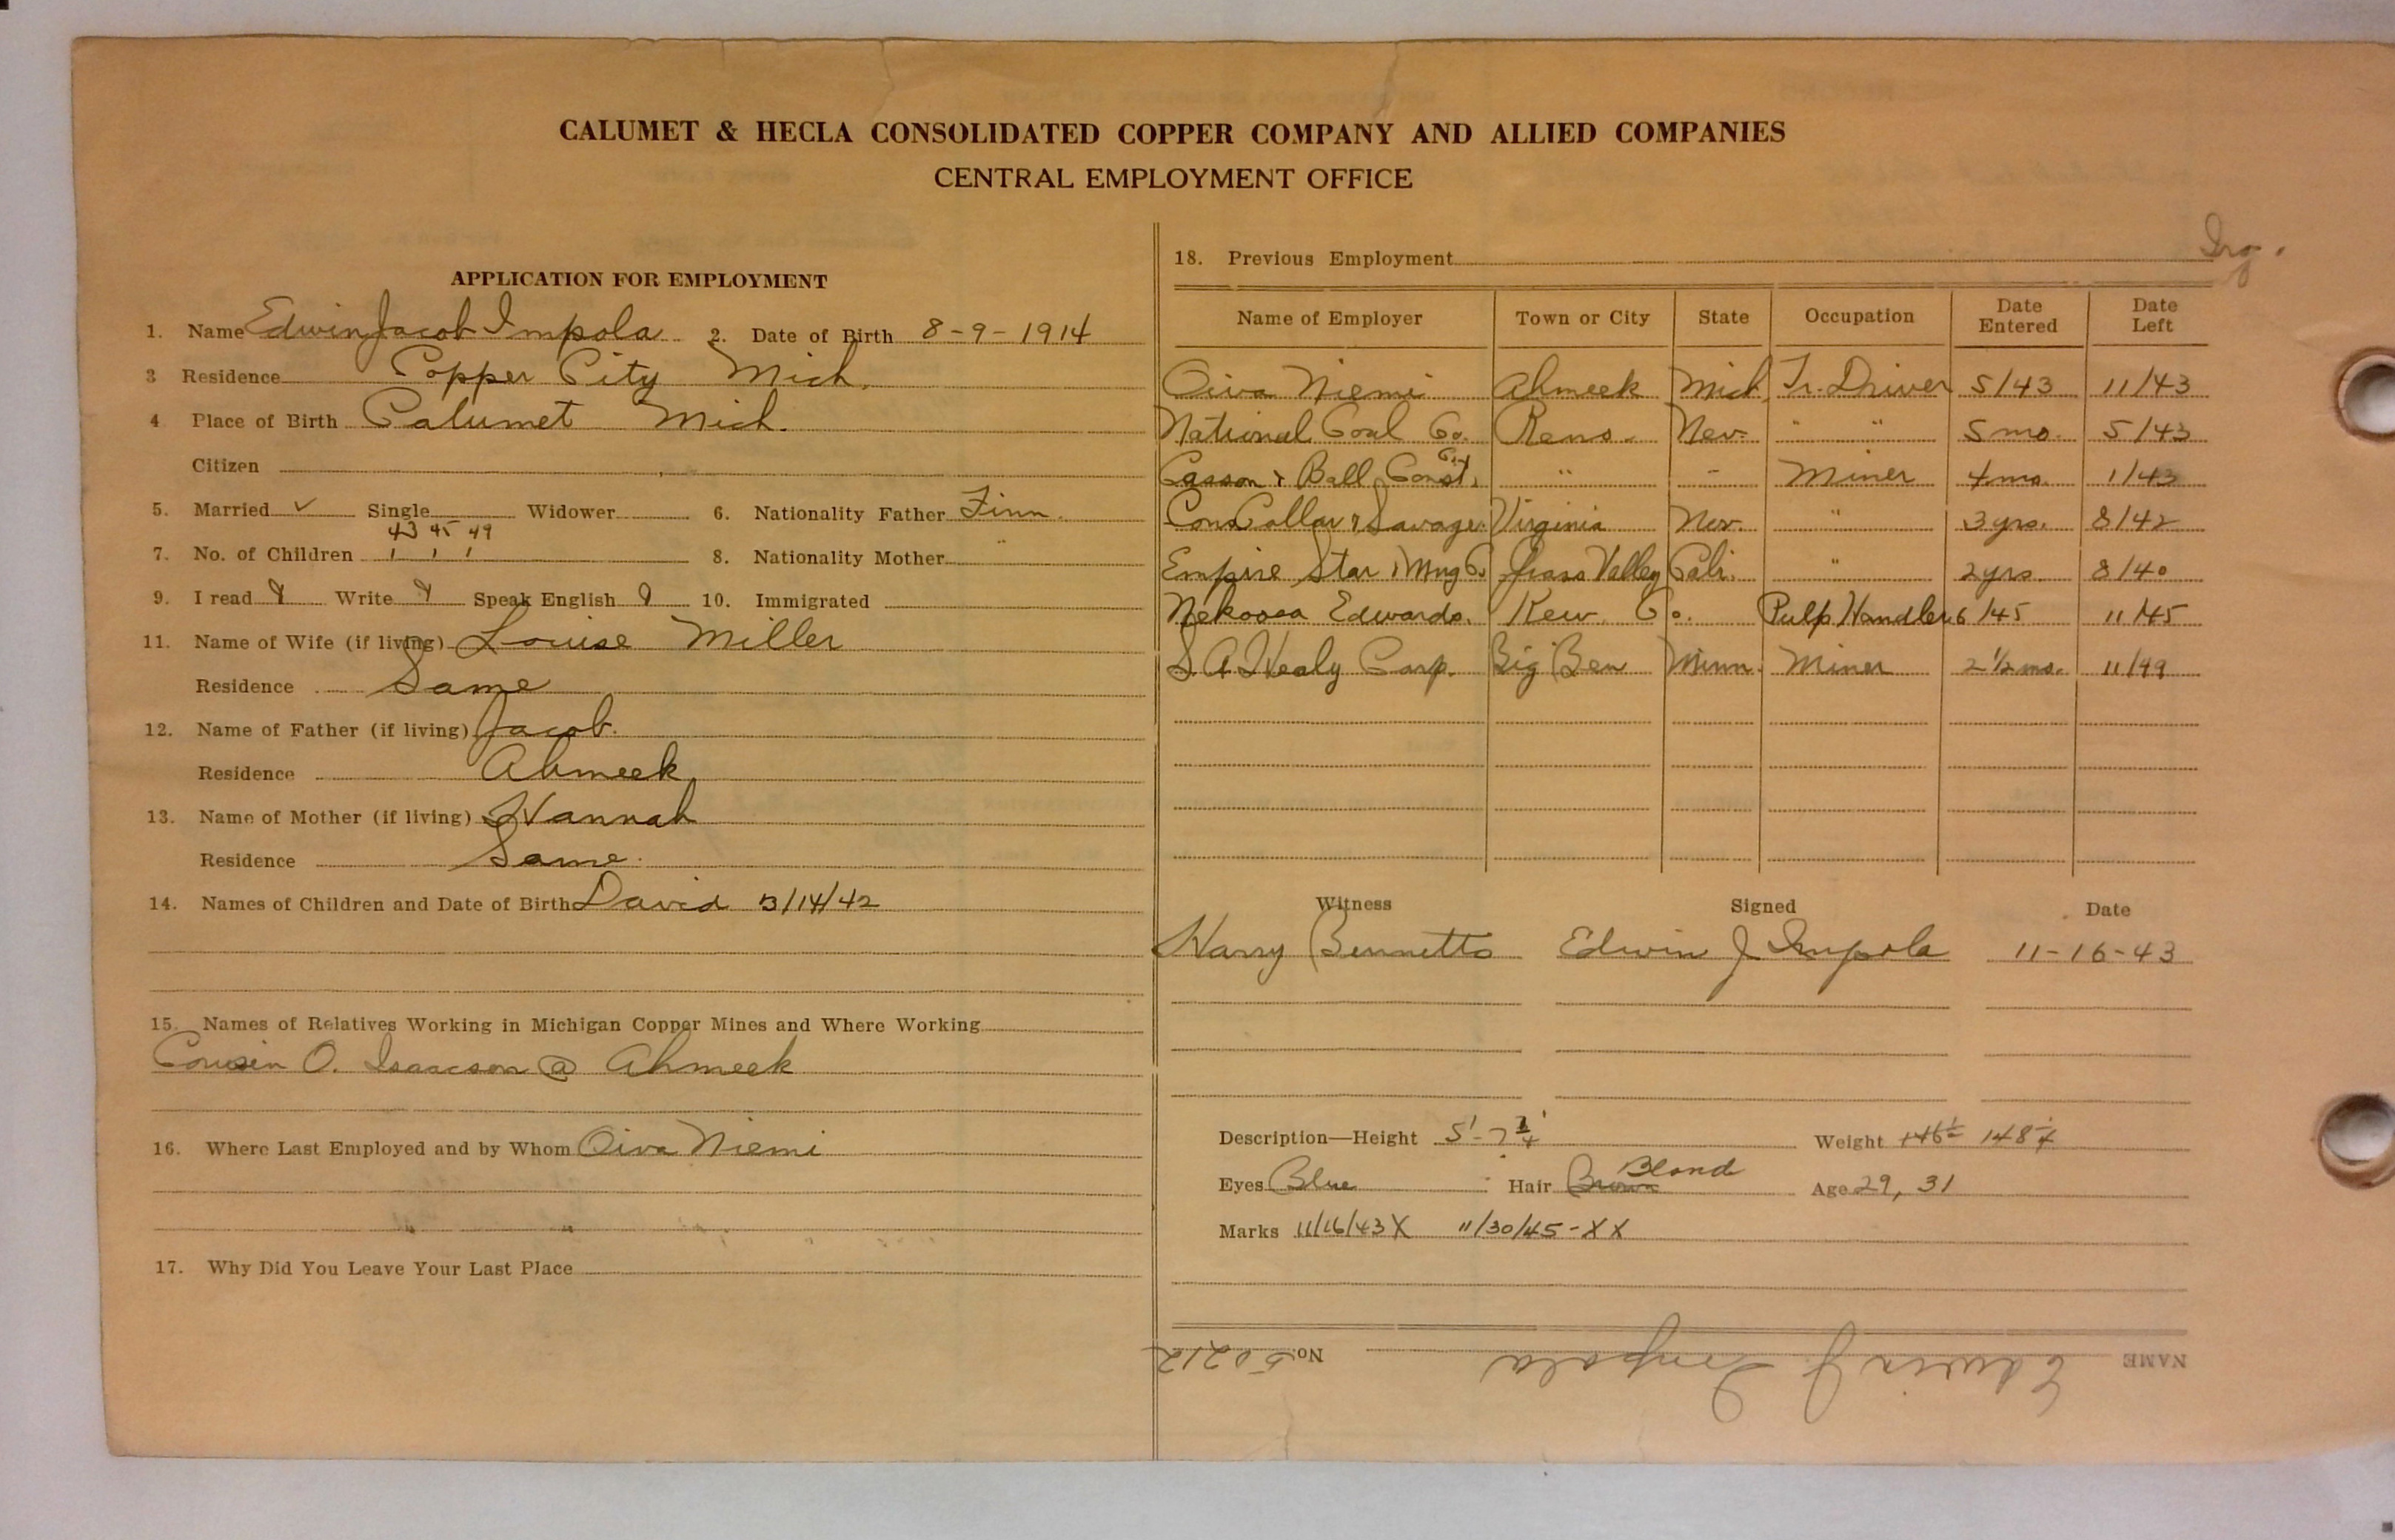 CALUMET & HECLA CONSOLIDATED COPPER COMPANY AND ALLIED COMPANIES
CENTRAL EMPLOYMENT OFFICE
APPLICATION FOR EMPLOYMENT
1. Name Edwin Jacob Impola 2. Date of Birth 8-9-1914
3 Residence Copper City Mich.
4 Place of Birth Calumet Mich.
Citizen
5. Married ✓ Single Widower 6. Nationality Father Finn.
43 45 49
7. No. of Children 1 1 1 8. Nationality Mother "
9. I read Write Speak English 10. Immigrated
11. Name of Wife (if living) Louise Miller
Residence Same
12. Name of Father (if living) Jacob.
Residence Ahmeek
13. Name of Mother (if living) Hannah
Residence Same.
14. Names of Children and Date of Birth David 3/14/42
15. Names of Relatives Working in Michigan Copper Mines and Where Working
Cousin O. Isaacson @ Ahmeek
16. Where Last Employed and by Whom Oiva Niemi
17. Why Did You Leave Your Last Place
18. Previous Employment
Name of Employer Town or City State Occupation Date Entered Date Left
Oiva Niemi Ahmeek Mich. Tr. Driver 5/43 11/43
National Coal Co. Reno. Nev. " " 5 mo. 5/43
Casson & Ball Const. " " Miner 4 mo. 1/43
Cons Collar & Savage. Virginia City Nev. " 3 yrs. 8/42
Empire Star Mng Co. Grass Valley Cali. " 2 yrs. 8/40
Nekoosa Edwards. Kew. Co. Pulp Handler 6/45 11/45
S. A. Healy Corp. Big Ben Minn. Miner 2 1/2 mo. 11/49
Witness Signed Date
Harry Bennetts Edwin J Impola 11-16-43
Description—Height 5'-7 Weight 146½ 148¼
Eyes Blue Hair Brown Blond Age 29, 31
Marks 11/16/43 X 11/30/45-XX
NAME Edwin J. Impola No. 50212